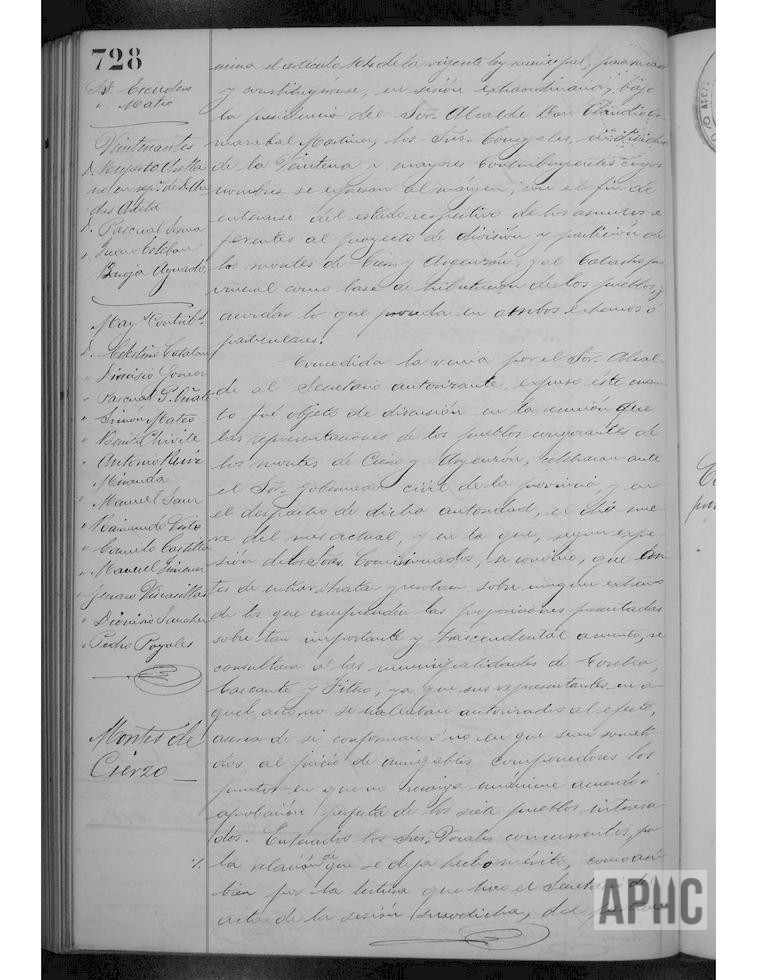 728
Sr. Escudero
" Mateo
Veintenantes
D. Ruperto
" Pascual
" Juan Esteban
Borja Aguado
May.s Contrib.s
D. Celestino Catalan
" Dionisio
" Pascual P. Oñate
" Simón Mateo
" Benito Chivite
" Antonio Ruiz
Miranda
" Manuel Sanz
" Raimundo
" Camilo Castilla
" Manuel Jimenez
" Genaro Viscasillas
" Dionisio Sanchez
" Pedro Poyales
Montes de
Cierzo
mina el artículo 104 de la vigente ley municipal, para
y constituyéronse, en sesión extraordinaria y bajo
la presidencia del Sor. Alcalde Don Claudio
Martinez, los Sres. Concejales,
de la Veintena y mayores Contribuyentes cuyos
nombres se expresan al márgen; con el fin de
enterarse del estado respectivo de los asuntos re-
ferentes al proyecto de división y partición de
los montes de Cierzo y Argenzón, y al Catastro pro-
vincial como base de tributación de los pueblos, y
acordar lo que proceda en ambos extremos ó
particulares.
Concedida la venia por el Sor. Alcal-
de al Secretario autorizante, expuso éste cuan-
to fué objeto de discusión en la reunión que
las representaciones de los pueblos congozantes de
los montes de Cierzo y Argenzón, celebraron ante
el Sor. Gobernador civil de la provincia, y en
el despacho de dicha autoridad, el día nue-
ve del mes actual, y en la que, según expo-
sión de los Sres. Comisionados, se convino, que an-
tes de entrar á tratar y resolver sobre ningun extremo
de los que comprenden las proposiciones presentadas
sobre tan importante y trascendental asunto, se
consultara á las municipalidades de Corella,
Cascante y Fitero, ya que sus representantes en a-
quel acto no se hallaban autorizados al efecto,
acerca de si conforman ó no en que sean someti-
dos al juicio de amigables componedores los
puntos en que no recaiga unánime acuerdo ó
aprobación perfecta de los siete pueblos interesa-
dos. Enterados los Sres. Vocales concurrentes, por
la relación de que se deja hecho mérito, como tam-
bien por la lectura que hizo el Secretario del
acta de la sesión susodicha, del
APHC